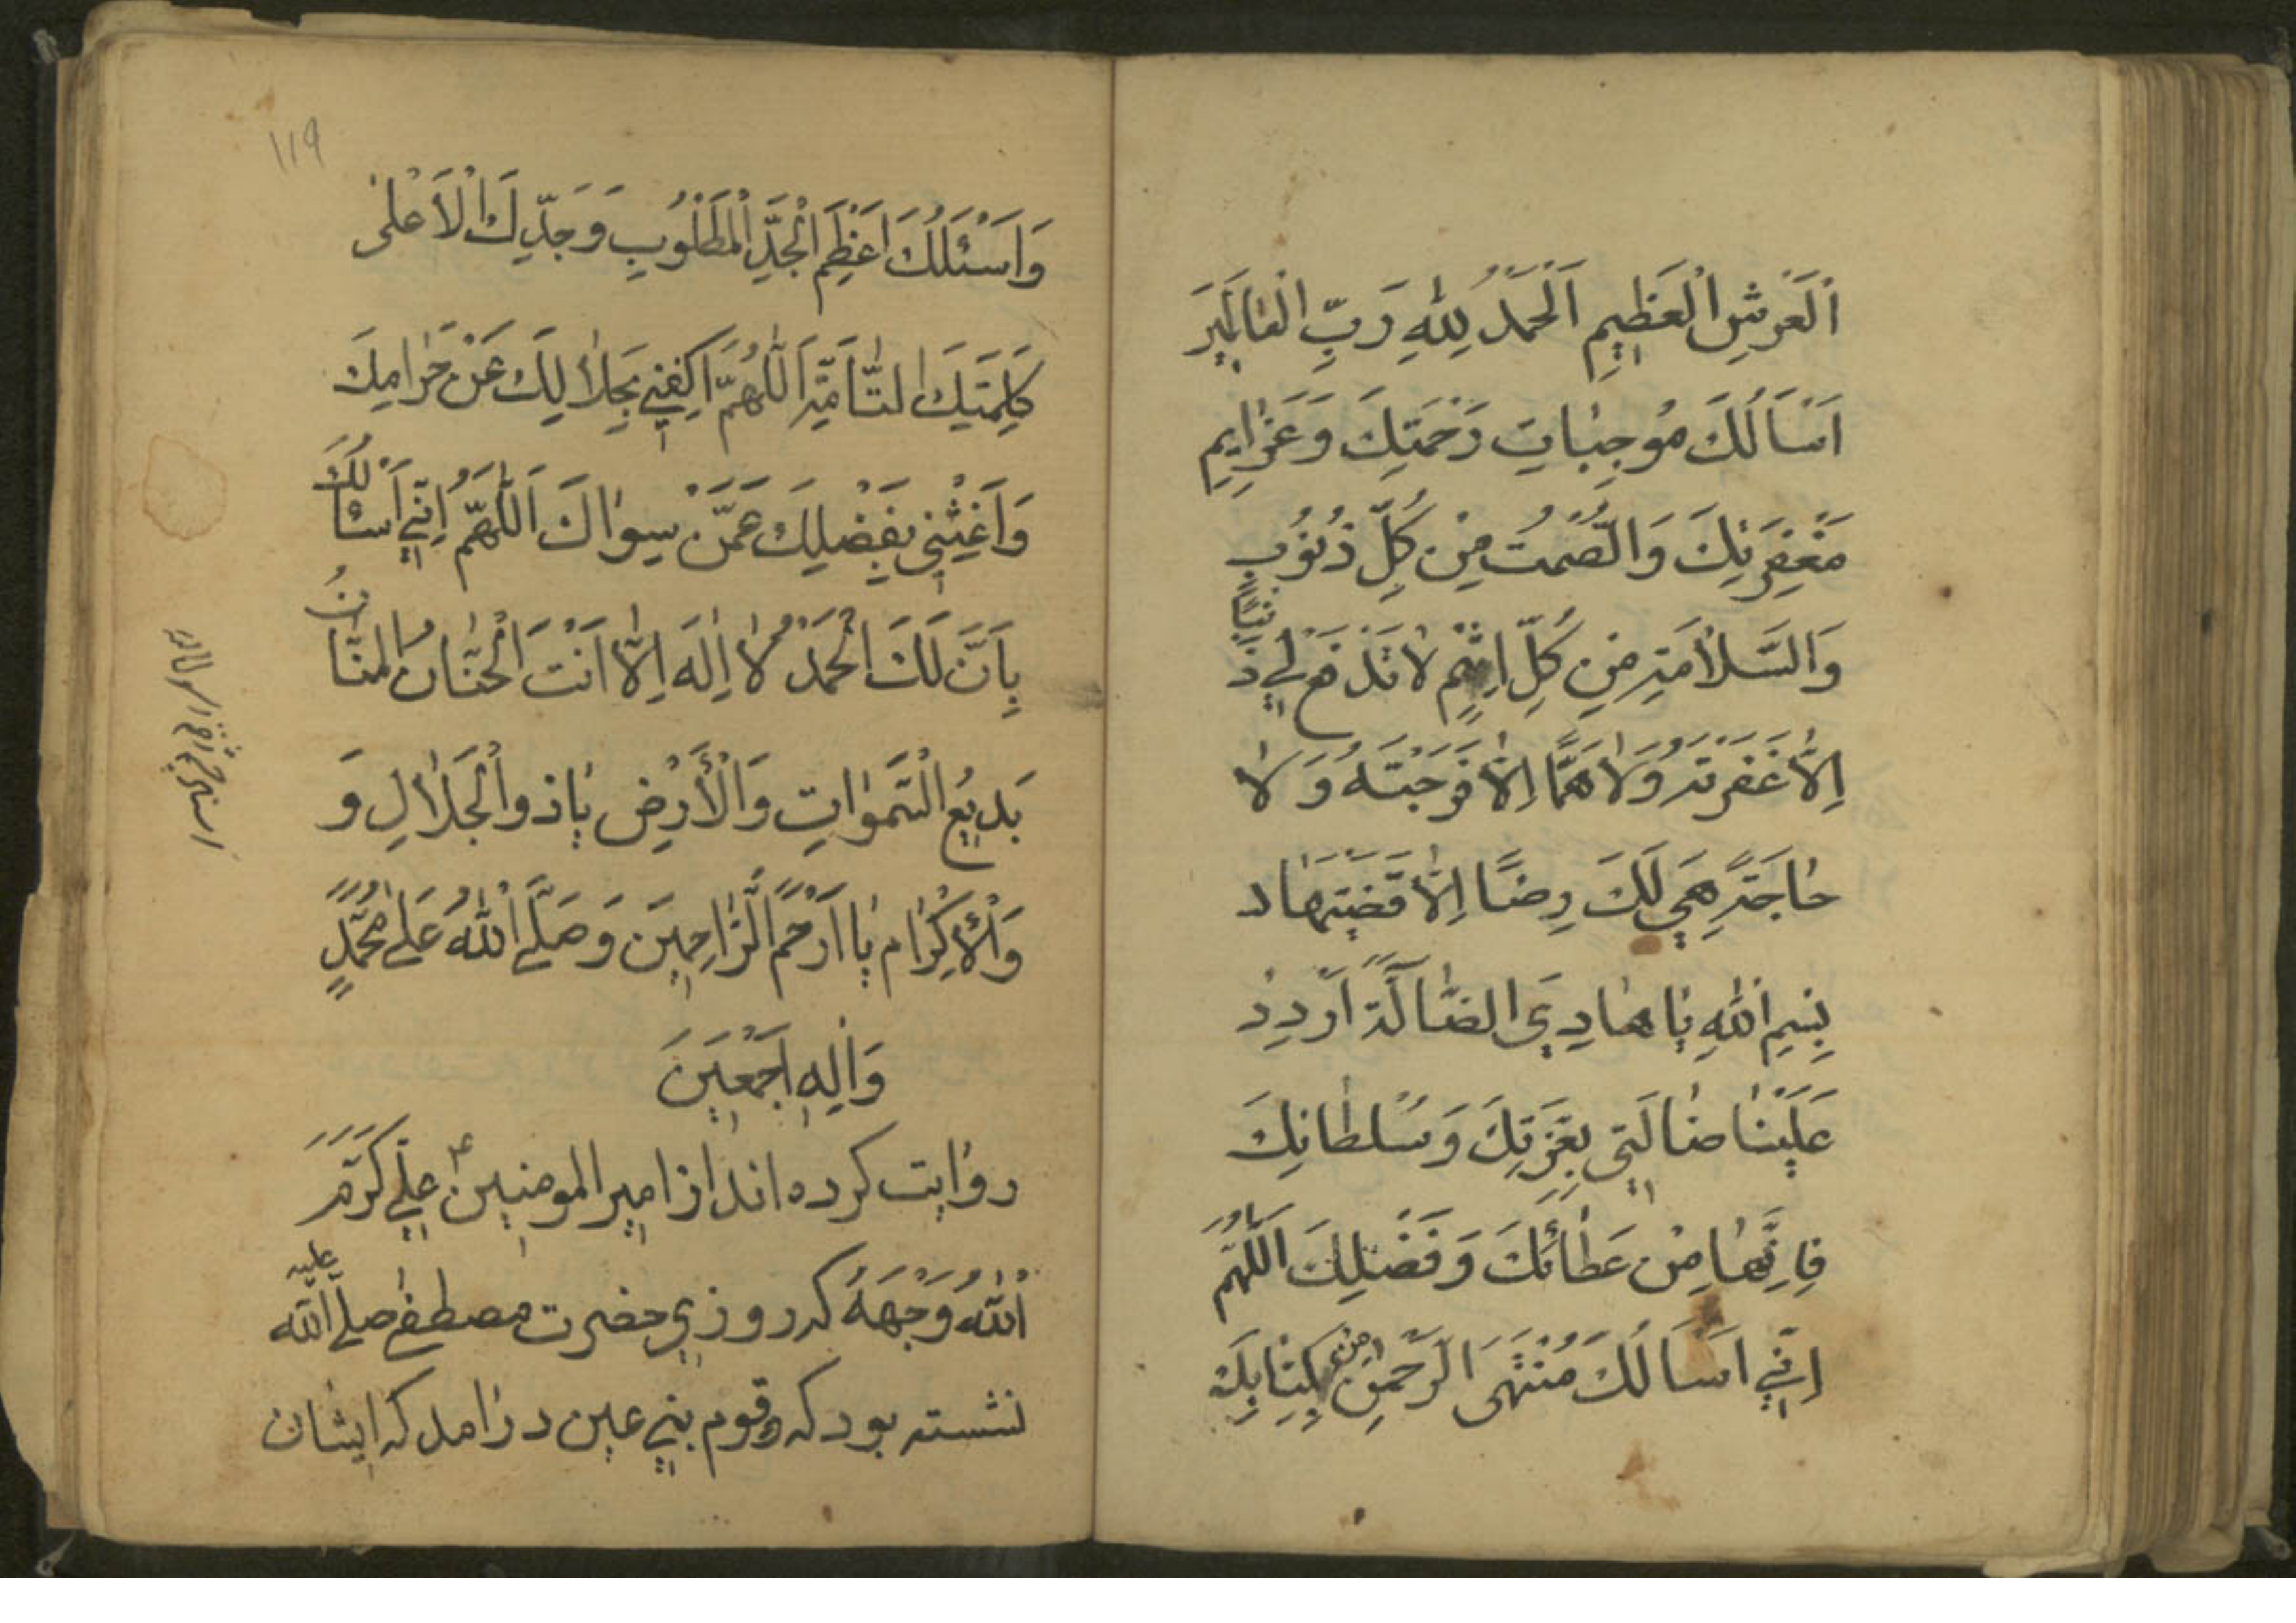 اَلْعَرْشِ الْعَظِيمِ اَلْحَمْدُ لِلّٰهِ رَبِّ الْعَالَمِينَ
اَسْاَلُكَ مُوجِبَاتِ رَحْمَتِكَ وَعَزَايِمِ
مَغْفِرَتِكَ وَالعصمت مِنْ كُلِّ ذُنُوبٍ
وَالسَّلَامَةِ مِنْ كُلِّ اِثْمٍ لَا تَدَعْ لِي ذَنْبًا
اِلَّا غَفَرْتَهُ وَلَا هَمًّا اِلَّا فَرَّجْتَهُ وَلَا
حَاجَةً هِيَ لَكَ رِضًا اِلَّا قَضَيْتَهَا
بِسْمِ اللّٰهِ يَا هَادِيَ الضَّالَّةِ اُرْدُدْ
عَلَيْنَا ضَالَّتِي بِعِزَّتِكَ وَسُلْطَانِكَ
فَاِنَّهَا مِنْ عَطَائِكَ وَفَضْلِكَ اَللّٰهُمَّ
اِنِّي اَسْاَلُكَ مُنْتَهَى الرَّحْمٰنِ مِنْ كِتَابِكَ
١١٩
وَاَسْئَلُكَ اَعْظَمَ الْجَدِّ الْمَطْلُوبِ وَجَدِّكَ الْاَعْلٰى
كَلِمَتِكَ التَّامَّةِ اَللّٰهُمَّ اكْفِنِي بِحَلَالِكَ عَنْ حَرَامِكَ
وَاَغْنِنِي بِفَضْلِكَ عَمَّنْ سِوَاكَ اَللّٰهُمَّ اِنِّي اَسْئَالُكَ
بِاَنَّ لَكَ الْحَمْدُ لَا اِلٰهَ اِلَّا اَنْتَ الْحَنَّانُ الْمَنَّانُ
بَدِيعُ السَّمٰوَاتِ وَالْاَرْضِ يَا ذُو الْجَلَالِ وَ
وَالْاِكْرَامِ يَا اَرْحَمَ الرَّاحِمِينَ وَصَلَّى اللّٰهُ عَلٰى مُحَمَّدٍ
وَاٰلِهِ اَجْمَعِينَ
روایت کرده اند از امیر المومنین علی کَرَّمَ
اللّٰهُ وَجْهَهُ که روزی حضرت مصطفی صلی الله علیه
نشسته بود که قوم بنی عین درآمد که ایشان